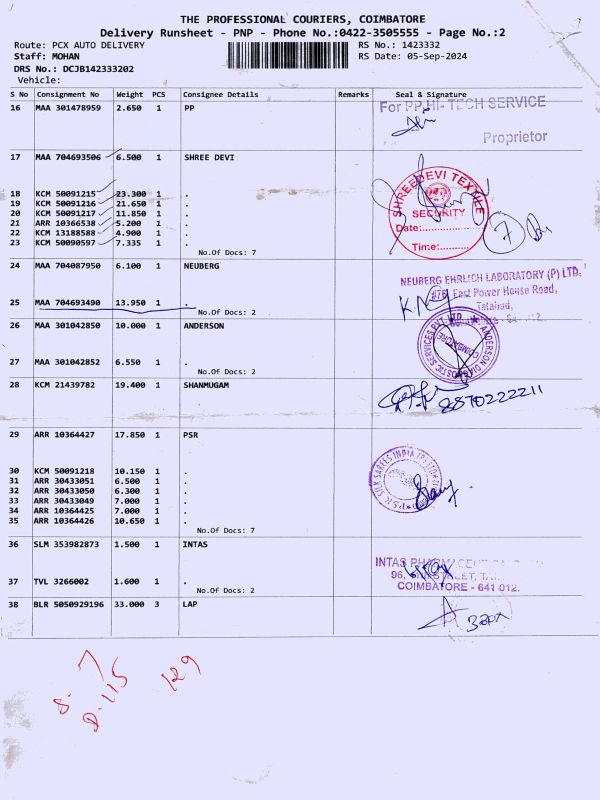 THE PROFESSIONAL COURIERS, COIMBATORE
Delivery Runsheet - PNP - Phone No.:0422-3505555 - Page No.:2
Route: PCX AUTO DELIVERY RS No.: 1423332
Staff: MOHAN RS Date: 05-Sep-2024
DRS No.: DCJB142333202
Vehicle:
S No Consignment No Weight PCS Consignee Details Remarks Seal & Signature
16 MAA 301478959 2.650 1 PP
For PP HI-TECH SERVICE
Proprietor
17 MAA 704693506 6.500 1 SHREE DEVI
18 KCM 50091215 23.300 1 .
19 KCM 50091216 21.650 1 .
20 KCM 50091217 11.850 1 .
21 ARR 10366538 5.200 1 .
22 KCM 13188588 4.900 1 .
23 KCM 50090597 7.335 1 .
No.Of Docs: 7
SHREEDEVI TEXTILE
SECURITY
Date:..............
Time:..........
7
24 MAA 704087950 6.100 1 NEUBERG
NEUBERG EHRLICH LABORATORY (P) LTD.
#76, East Power House Road,
Tatabad,
25 MAA 704693490 13.950 1 .
No.Of Docs: 2
26 MAA 301042850 10.000 1 ANDERSON
ANDERSON DIAGNOSTIC SERVICES PVT. LTD.
COIMBATORE
27 MAA 301042852 6.550 1 .
No.Of Docs: 2
28 KCM 21439782 19.400 1 SHANMUGAM
8870222211
29 ARR 10364427 17.850 1 PSR
30 KCM 50091218 10.150 1 .
31 ARR 30433051 6.500 1 .
32 ARR 30433050 6.300 1 .
33 ARR 30433049 7.000 1 .
34 ARR 10364425 7.000 1 .
35 ARR 10364426 10.650 1 .
No.Of Docs: 7
PSR SILK SAREES INDIA (P) LTD
36 SLM 353982873 1.500 1 INTAS
37 TVL 3266002 1.600 1 .
No.Of Docs: 2
INTAS
COIMBATORE - 641 012.
38 BLR 5050929196 33.000 3 LAP
S- 7
D-115
129